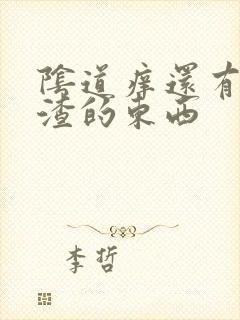 陰道痒還有
渣的東西
李哲